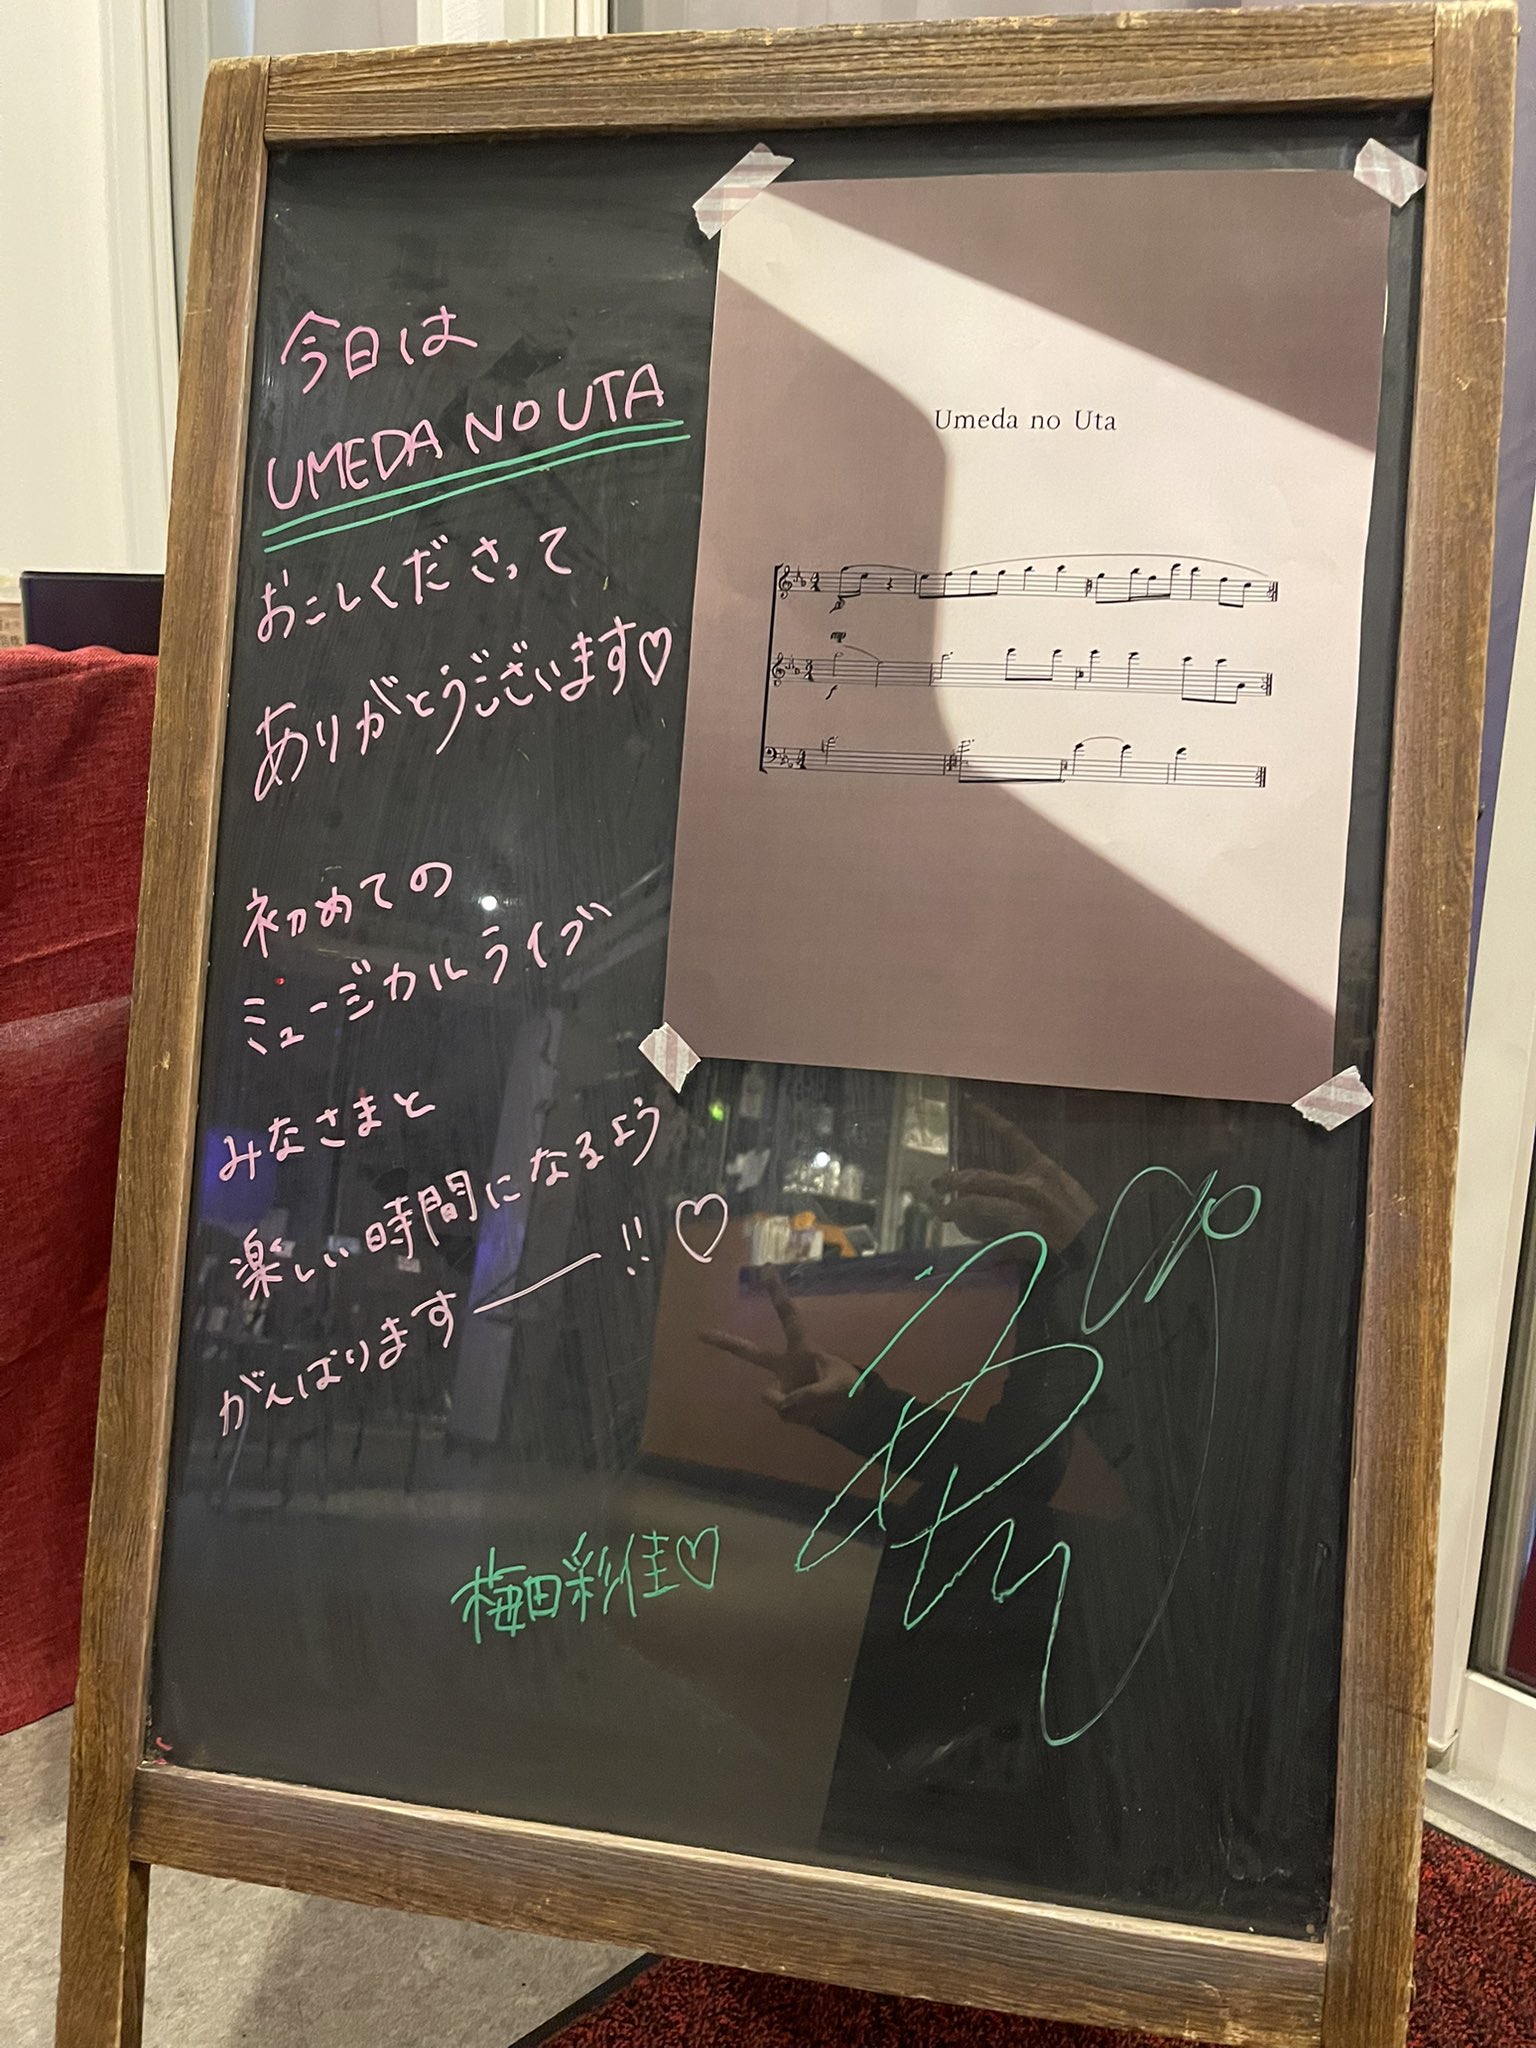 今日は
UMEDA NO UTA
おこしくださって
ありがとうございます♡
初めての
ミュージカルライブ
みなさまと
楽しい時間になるよう
がんばりますー!!♡
梅田彩佳♡
Umeda no Uta
mp
f